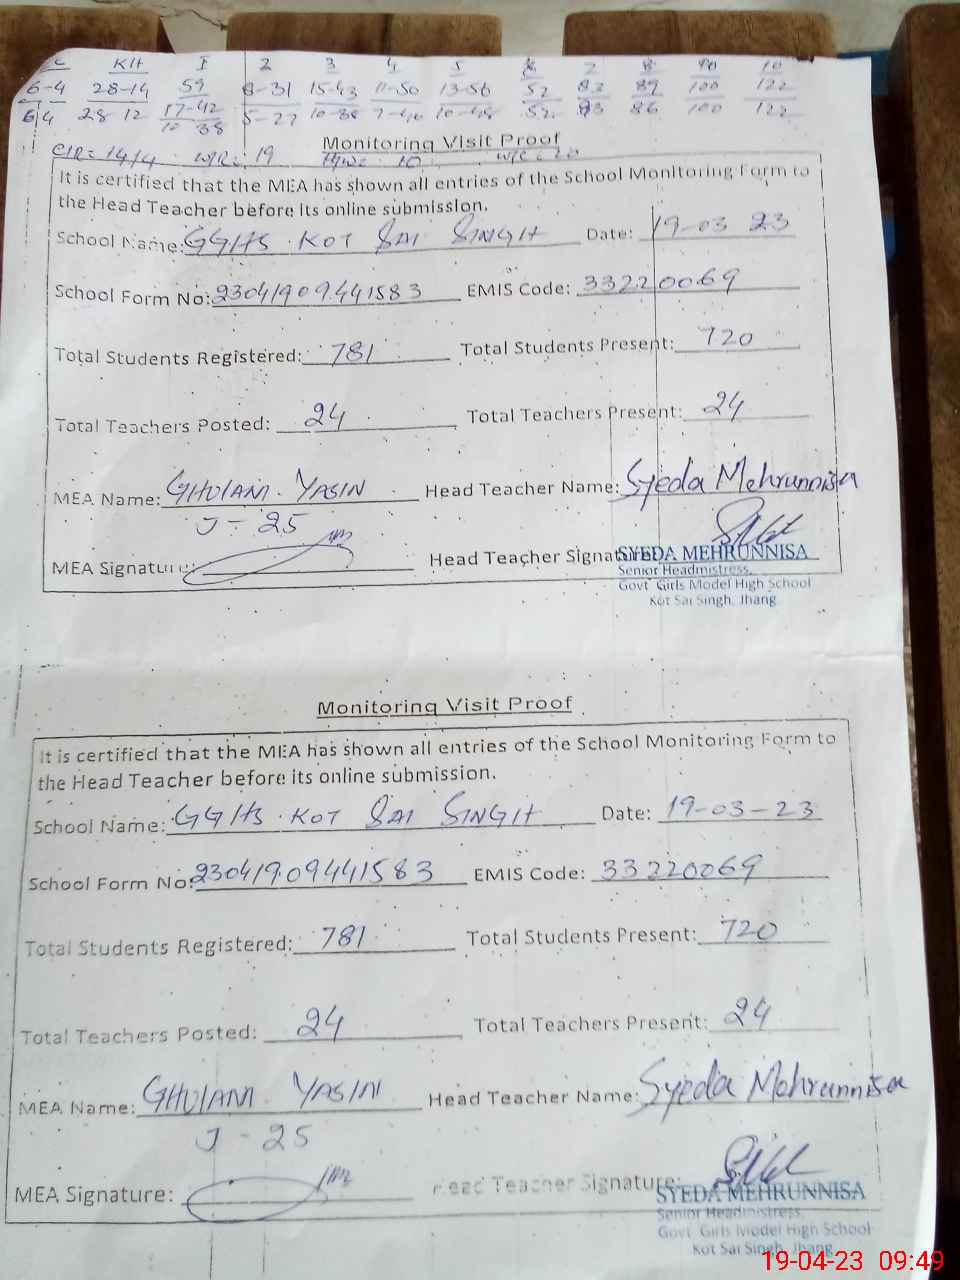 C KH I 2 3 4 5 6 7 8 9th 10
6-4 28-14 59 8-31 15-43 11-50 13-56 52 83 89 100 122
6 4 28 12 17-42 5-27 10-38 7-46 10-48 52 83 86 100 122
10 38
Monitoring Visit Proof
14/4 19 10
It is certified that the MEA has shown all entries of the School Monitoring Form to
the Head Teacher before its online submission.
School Name: GGHS . KOT SAI SINGH Date: 19-03 23
School Form No: 23041909441583 EMIS Code: 33220069
Total Students Registered: 781 Total Students Present: 720
Total Teachers Posted: 24 Total Teachers Present: 24
MEA Name: GHULAM . YASIN Head Teacher Name: Syeda Mehrunnisa
J - 25
MEA Signature: Head Teacher Signature:
SYEDA MEHRUNNISA
Senior Headmistress,
Govt Girls Model High School
Kot Sai Singh, Jhang
Monitoring Visit Proof
It is certified that the MEA has shown all entries of the School Monitoring Form to
the Head Teacher before its online submission.
School Name: GGHS . KOT SAI SINGH Date: 19-03-23
School Form No: 23041909441583 EMIS Code: 33220069
Total Students Registered: 781 Total Students Present: 720
Total Teachers Posted: 24 Total Teachers Present: 24
MEA Name: GHULAM YASIN Head Teacher Name: Syeda Mehrunnisa
J - 25
MEA Signature: Head Teacher Signature:
SYEDA MEHRUNNISA
Senior Headmistress,
Govt Girls Model High School
Kot Sai Singh, Jhang
19-04-23 09:49